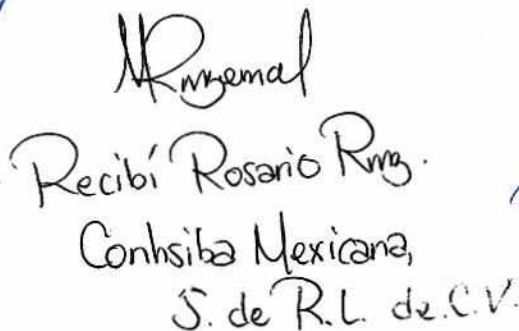 Recibí Rosario Rmz.
Conhsiba Mexicana,
S. de R.L. de C.V.